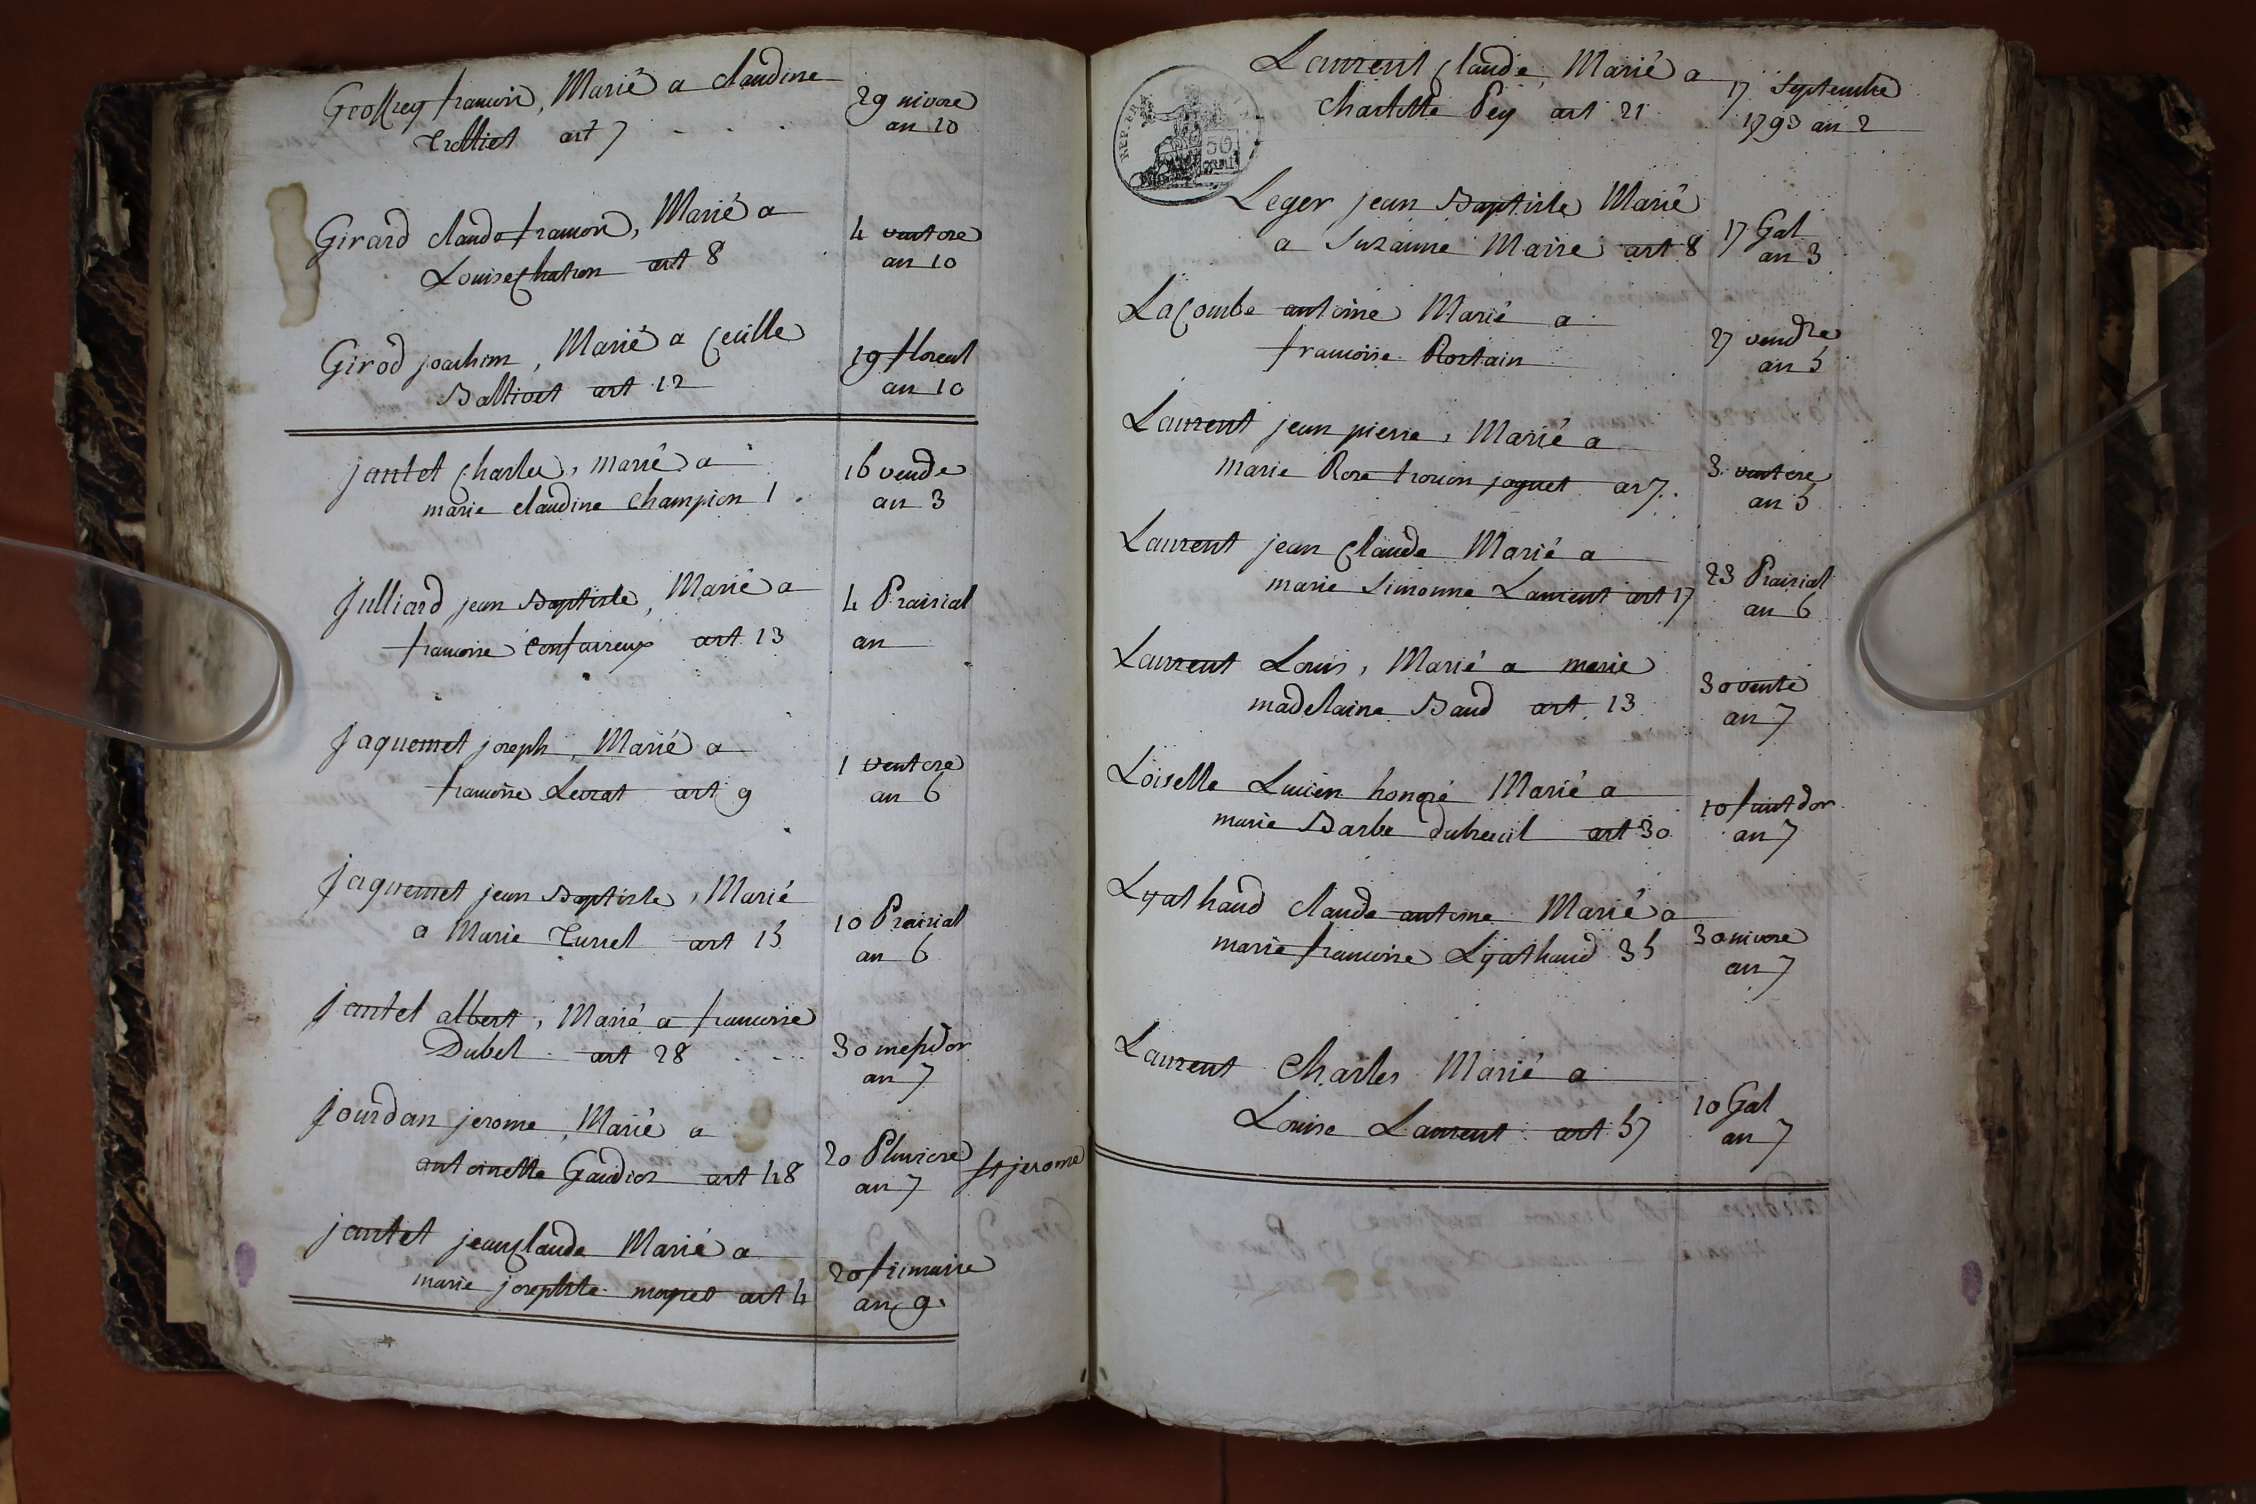 Geoffrey francois, Marié a claudine
Trolliet art 7
29 nivose
an 10
Girard claude francois, Marié a
Louise Chatron art 8
4 ventose
an 10
Girod joachim, Marié a Cecille
Ballivet art 12
19 floreal
an 10
jantet Charles, marié a
marie claudine Champion 1
16 vende
an 3
Julliard jean Baptiste, Marié a
francoise art 13
4 Prairial
an
Jaquemet joseph, Marié a
francoise Levrat art 9
1 ventose
an 6
Jaquemet jean Baptiste, Marié
a Marie Turrel art 15
10 Prairial
an 6
jantet albert, Marié a francoise
Dubel art 28
30 messidor
an 7
Jourdan jerome, Marié a
antoinette art 48
20 Pluviose
an 7
St jerome
jantet jean Claude Marié a
marie josephte art 4
20 frimaire
an 9
Laurent Claude, Marié a
Charlotte Pey art 21
17 Septembre
1793 an 2
REP. FRA.
50
Leger jean Baptiste Marié
a Suzanne Maire art 8
17 Gal
an 3
LaCombe antoine Marié a
francoise Rostain
27 vendre
an 5
Laurent jean pierre, Marié a
marie Rose jaquet ar 7
3 ventose
an 5
Laurent jean Claude Marié a
marie Simonne Laurent art 17
23 Prairial
an 6
Laurent Louis, Marié a marie
madelaine Baud art 13
30 vente
an 7
Loiselle Lucien honoré Marié a
marie Barbe dubreuil art 30
10 fruitdor
an 7
Lyathaud claude antoine Marié a
marie francoise Lyathaud 35
30 nivose
an 7
Laurent Charles Marié a
Louise Laurent art 57
10 Gal
an 7